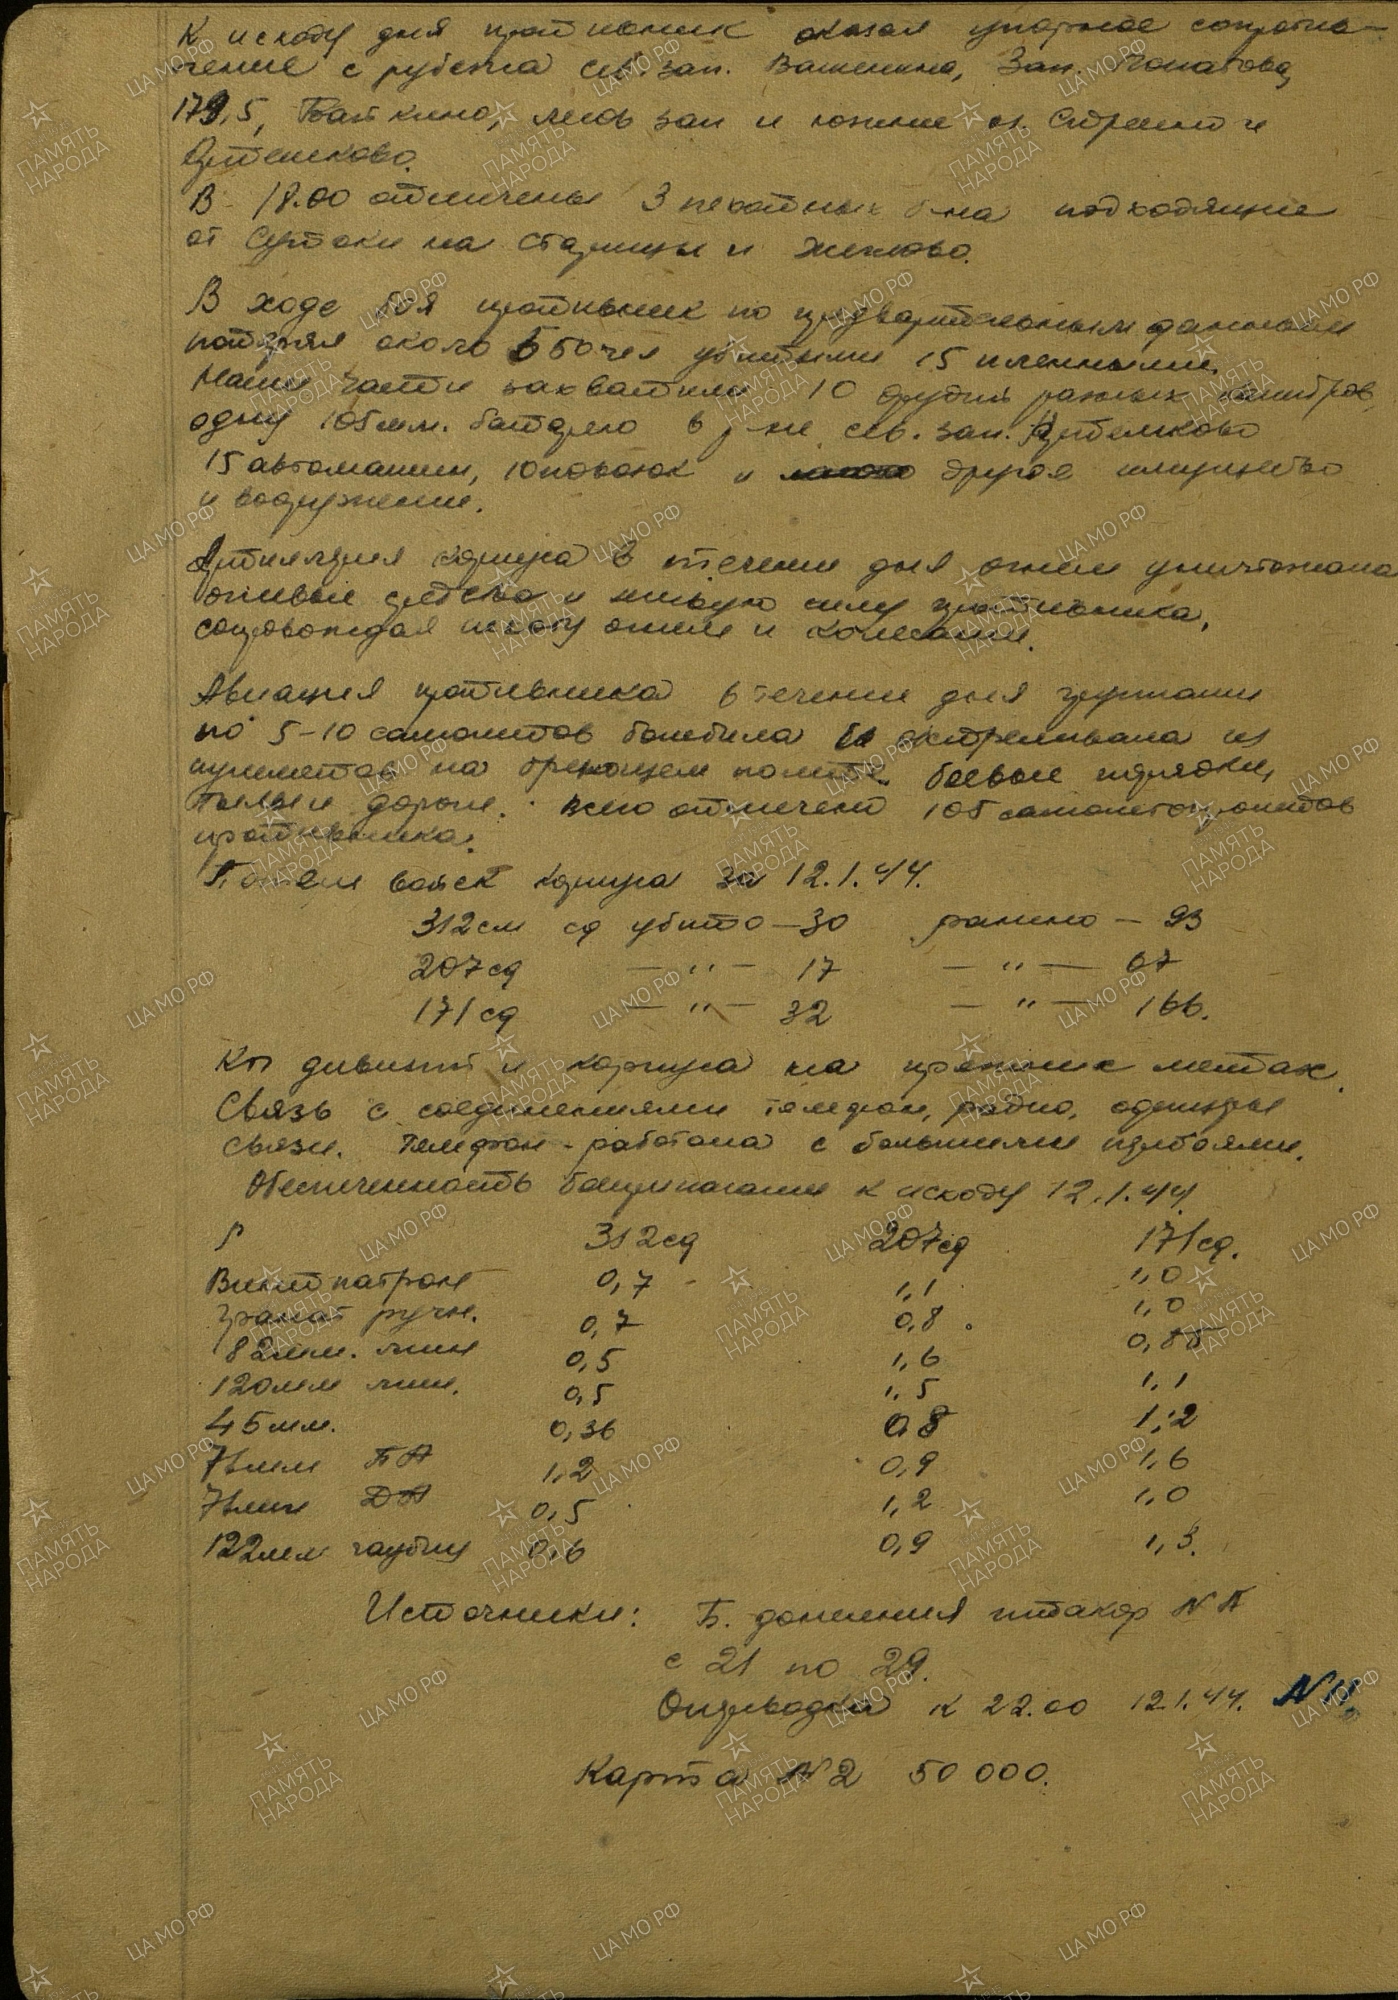 К исходу дня противник оказал упорное сопротив-
ление с рубежа сев. зап. Вашенина, Зап.
179,5, Баткино, лес зап и южнее
Артемково.
В 18.00 отмечены 3 пехотных б-на подходящие
от Сутоки на Старицы и
В ходе боя противник по предварительным данным
потерял около 550 чел убитыми 15 пленными.
Наши части захватили 10 орудий разных калибров,
одну 105 мм. батарею в р-не сев. зап. Артемково
15 автомашин, 10 повозок и другое имущество
и вооружение.
Артиллерия корпуса в течении дня огнем уничтожала
огневые средства и живую силу противника,
сопровождая пехоту огнем и колесами.
Авиация противника в течении дня группами
по 5-10 самолетов бомбила и обстреливала из
пулеметов на бреющем полете боевые порядки,
тылы и дороги. Всего отмечено 105 самолетовылетов
противника.
Потери войск корпуса за 12.1.44.
312 см сд убито – 30 ранено – 93
207 сд — " — 17 — " — 67
171 сд — " — 32 — " — 166.
КП дивизий и корпуса на прежних местах.
Связь с соединениями телефон, радио, офицеры
связи. Телефон - работала с большими перебоями.
Обеспеченность боеприпасами к исходу 12.1.44
312 сд 207 сд 171 сд.
Винт патрон 0,7 1,1 1,0
Гранат ручн. 0,7 0,8 1,0
82 мм. мин 0,5 1,6 0,85
120 мм мин. 0,5 1,5 1,1
45 мм. 0,36 0,8 1,2
76 мм ПА 1,2 0,9 1,6
76 мм ДА 0,5 1,2 1,0
122 мм гаубиц 0,6 0,9 1,3.
Источники: Б. донесения штакор №№
с 21 по 29.
Оперсводки к 22.00 12.1.44. № 11.
Карта №2 50 000.
ПАМЯТЬ НАРОДА
ЦАМО РФ